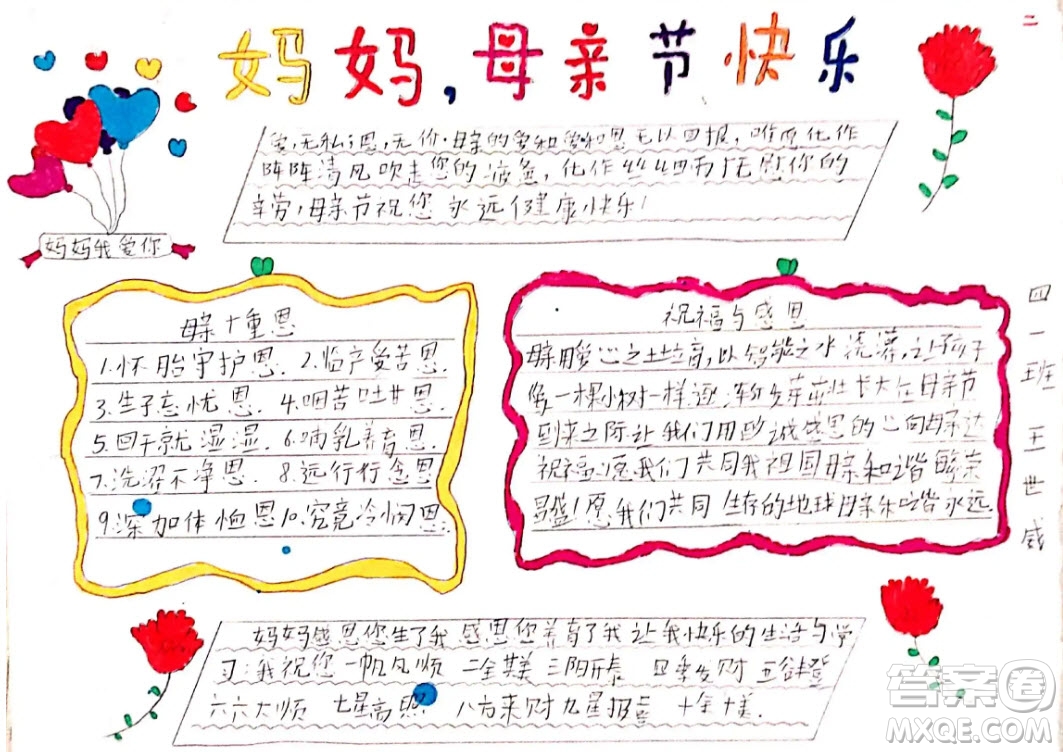 二
妈妈，母亲节快乐
爱，无私；恩，无价·母亲的爱和恩无以回报，唯愿化作
阵阵清风吹走您的疲惫，化作丝丝细雨抚慰你的
辛劳，母亲节祝您永远健康快乐！
妈妈我爱你
母亲十重恩
1.怀胎守护恩. 2.临产受苦恩.
3.生子忘忧恩. 4.咽苦吐甘恩.
5.回干就湿湿. 6.哺乳养育恩.
7.洗濯不净恩. 8.远行忆念恩.
9.深加体恤恩 10.究竟怜悯恩.
祝福与感恩
母亲用爱心之土垃高，以智能之水浇灌，让孩子
像一棵小树一样逐渐发芽成长大在母亲节
到来之际让我们用真诚感恩的心向母亲达
祝福愿我们共同我祖国母亲和谐繁荣
昌盛！愿我们共同生存的地球母亲和谐永远
四一班 王世威
妈妈感恩您生了我 感恩您养育了我 让我快乐的生活与学
习：我祝您 一帆风顺 二全其美 三阳开泰 四季发财 五谷丰登
六六大顺 七星高照 八方来财 九星报喜 十全十美.
答案圈
MXQE.COM